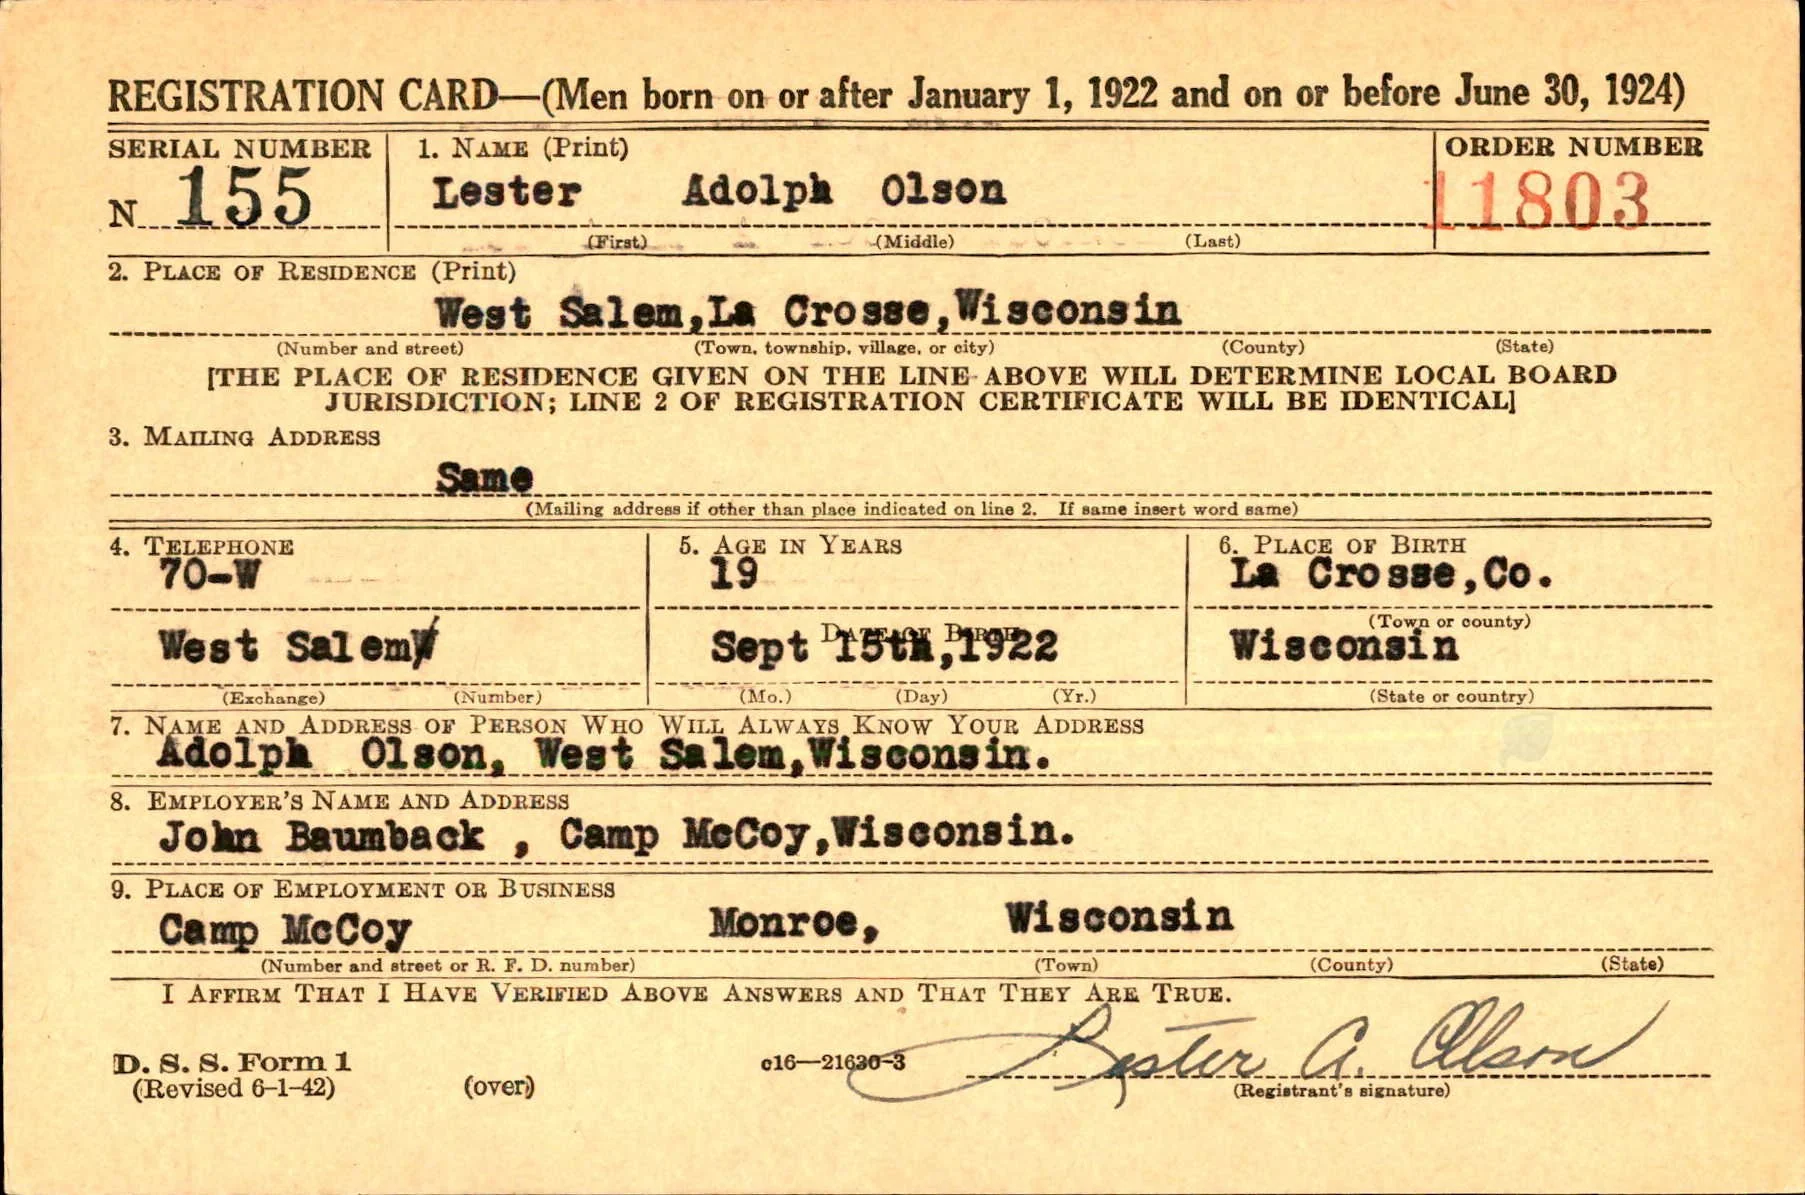 REGISTRATION CARD—(Men born on or after January 1, 1922 and on or before June 30, 1924)
SERIAL NUMBER
N 155
1. NAME (Print)
Lester Adolph Olson
(First) (Middle) (Last)
ORDER NUMBER
11803
2. PLACE OF RESIDENCE (Print)
West Salem,La Crosse,Wisconsin
(Number and street) (Town, township, village, or city) (County) (State)
[THE PLACE OF RESIDENCE GIVEN ON THE LINE ABOVE WILL DETERMINE LOCAL BOARD
JURISDICTION; LINE 2 OF REGISTRATION CERTIFICATE WILL BE IDENTICAL]
3. MAILING ADDRESS
Same
(Mailing address if other than place indicated on line 2. If same insert word same)
4. TELEPHONE
70-W
West Salem
(Exchange) (Number)
5. AGE IN YEARS
19
DATE OF BIRTH
Sept 15th,1922
(Mo.) (Day) (Yr.)
6. PLACE OF BIRTH
La Crosse,Co.
(Town or county)
Wisconsin
(State or country)
7. NAME AND ADDRESS OF PERSON WHO WILL ALWAYS KNOW YOUR ADDRESS
Adolph Olson, West Salem,Wisconsin.
8. EMPLOYER'S NAME AND ADDRESS
John Baumback , Camp McCoy,Wisconsin.
9. PLACE OF EMPLOYMENT OR BUSINESS
Camp McCoy Monroe, Wisconsin
(Number and street or R. F. D. number) (Town) (County) (State)
I AFFIRM THAT I HAVE VERIFIED ABOVE ANSWERS AND THAT THEY ARE TRUE.
Lester A. Olson
D. S. S. Form 1 c16—21630-3
(Revised 6-1-42) (over) (Registrant's signature)